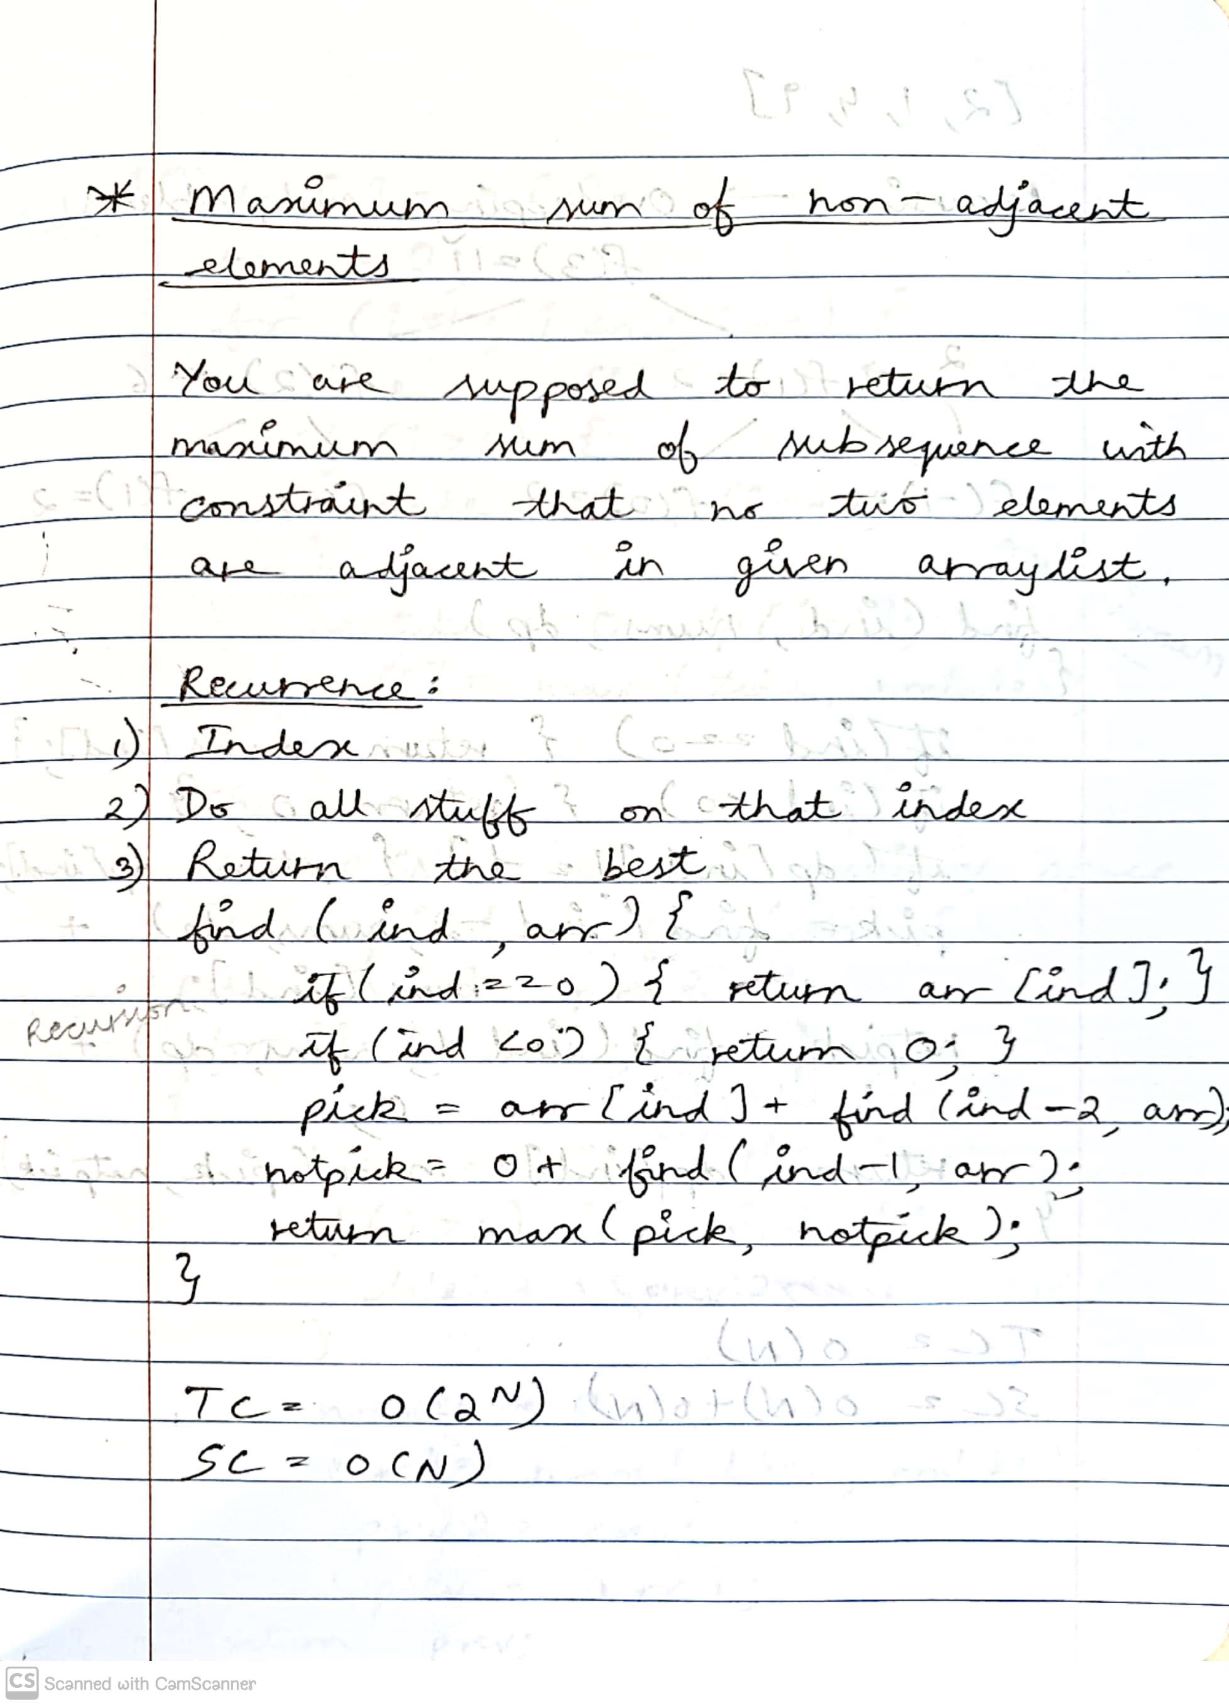 * Maximum sum of non-adjacent
elements
You are supposed to return the
maximum sum of subsequence with
constraint that no two elements
are adjacent in given arraylist.
Recurrence:
1) Index
2) Do all stuff on that index
3) Return the best
find (ind, arr) {
if (ind == 0) { return arr [ind]; }
Recursion
if (ind < 0) { return 0; }
pick = arr [ind] + find (ind-2, arr);
notpick = 0 + find (ind-1, arr);
return max (pick, notpick);
}
TC = O(2^N)
SC = O(N)
CS Scanned with CamScanner